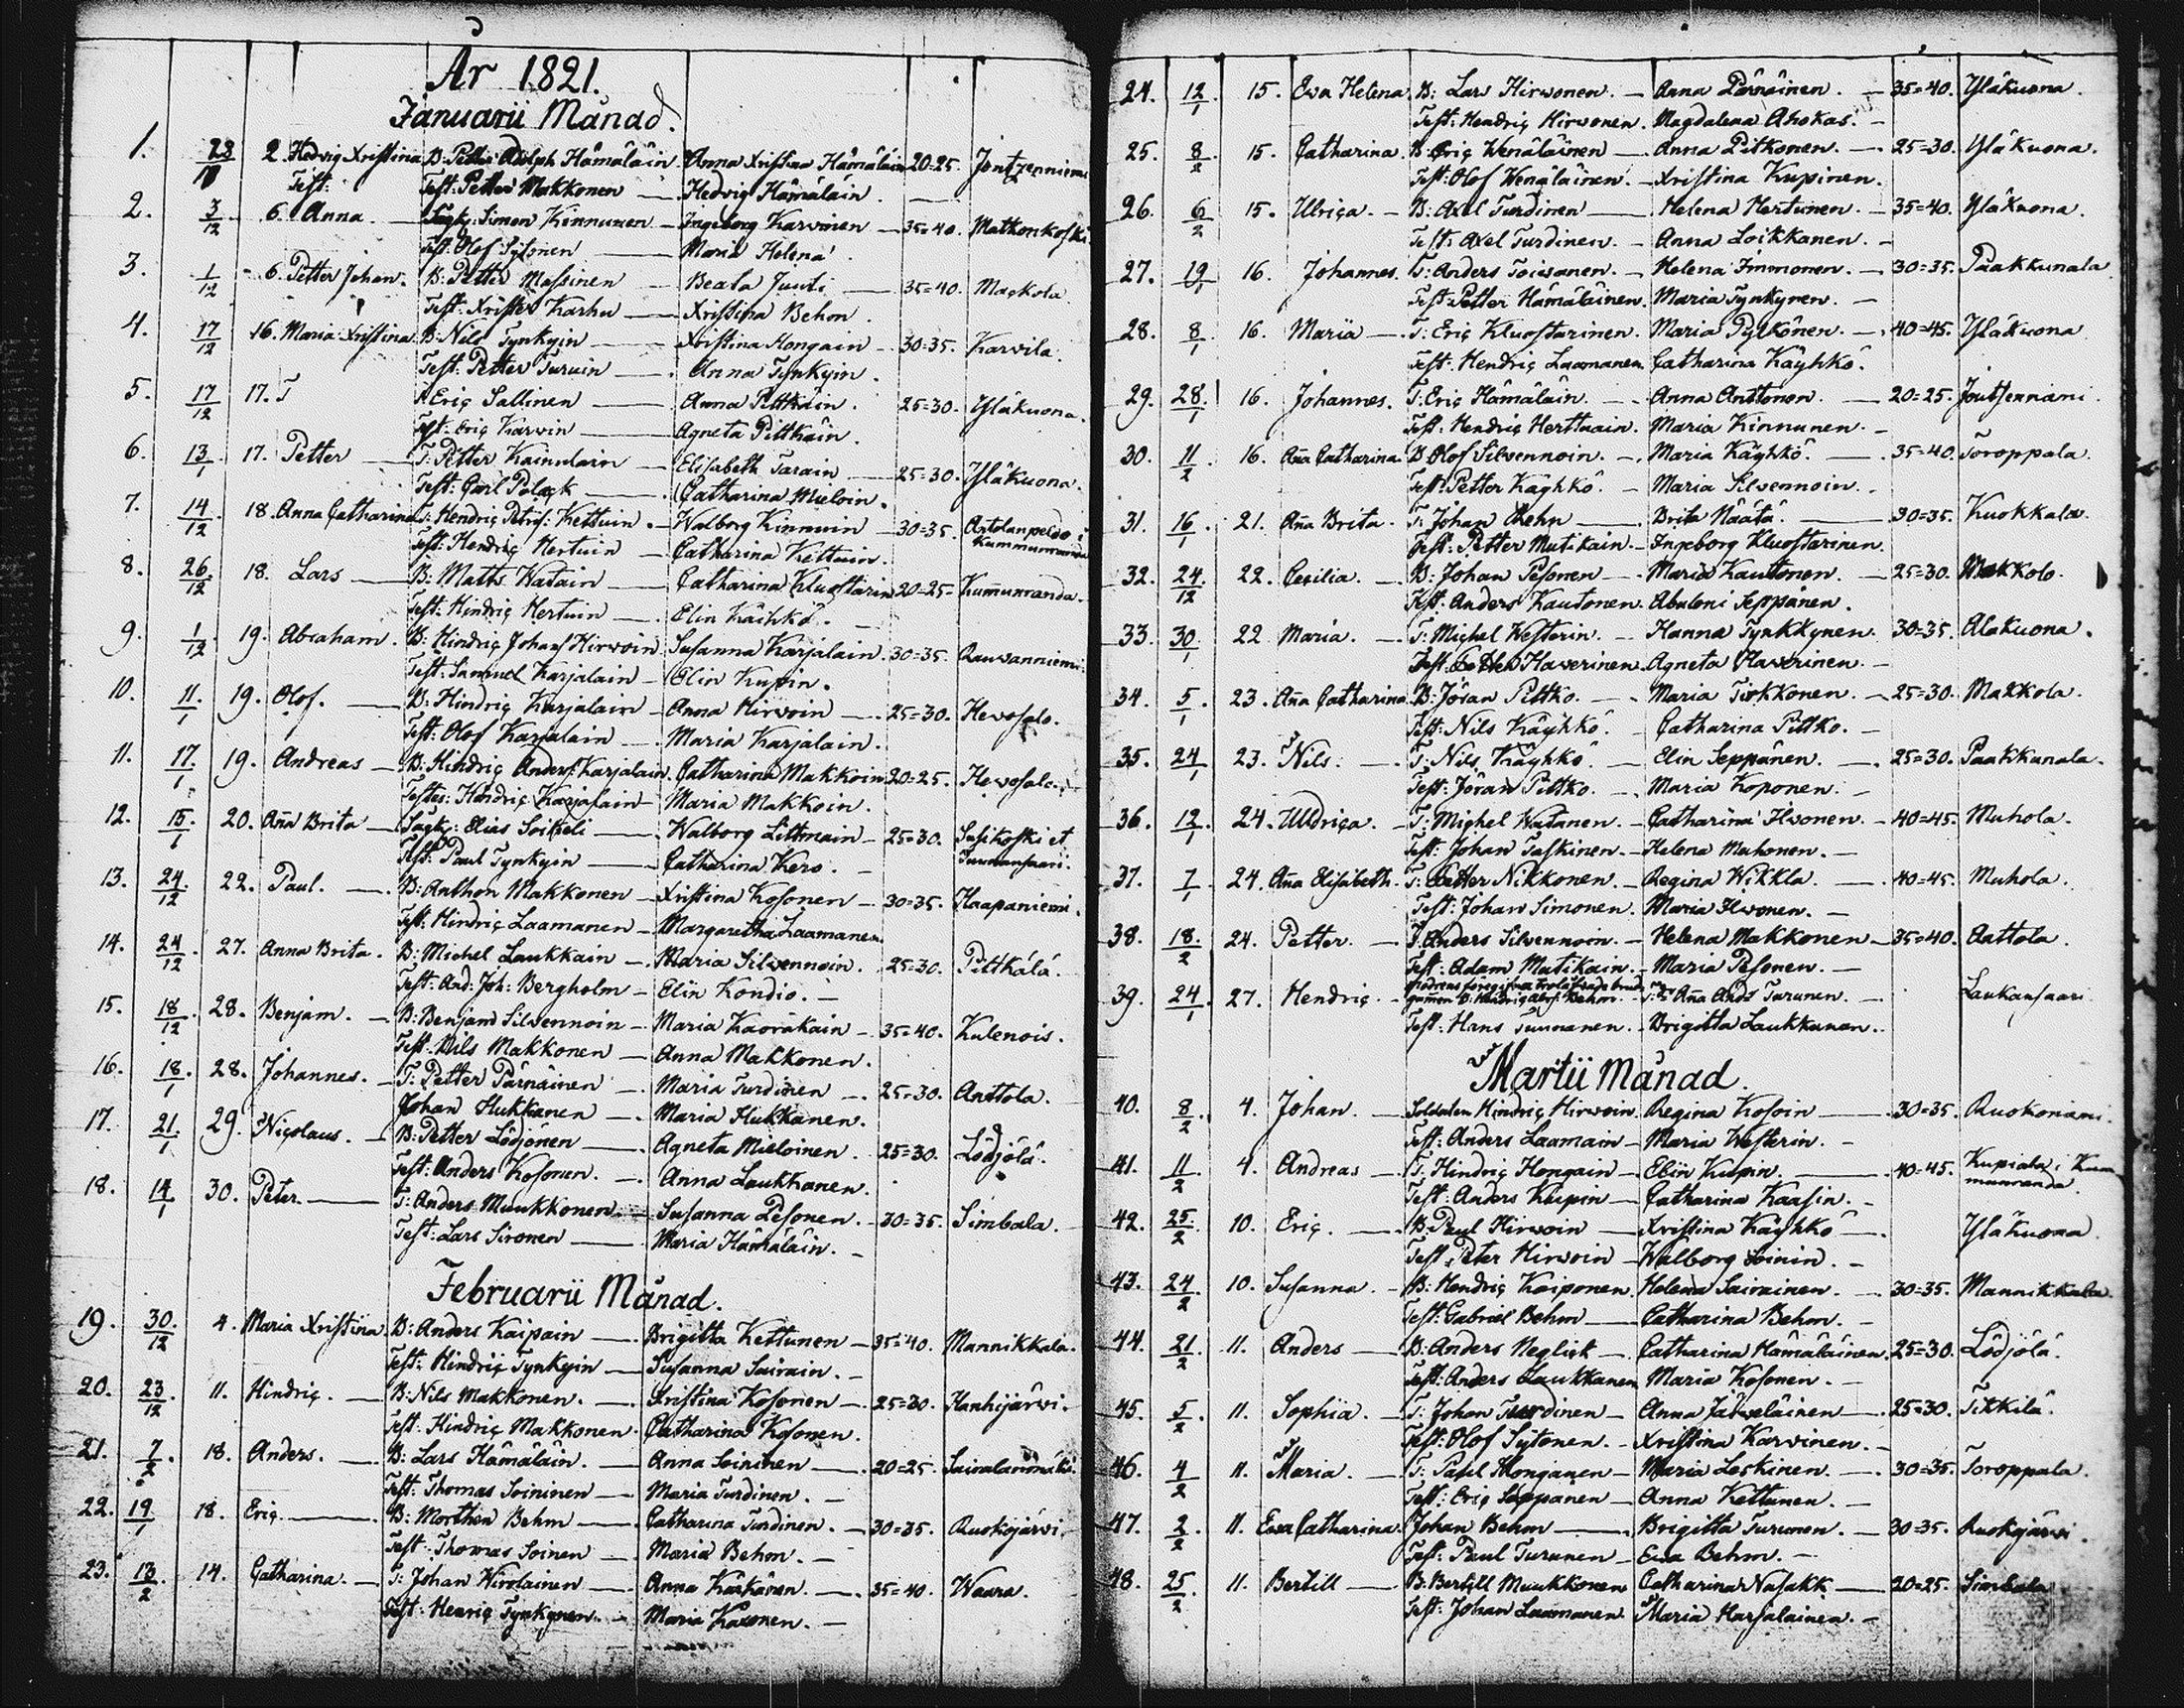 År 1821.
Januarii Månad.
1. 2. Hedvig Xristina B: Petter Adolph Hämäläin Anna Xristina Hämäläin 20=25. Joutzenniemi
Test: Test: Petter Makkonen — Hedvig Hämäläin.
2. 3/12 6. Anna. — Simon Kinnunen — Ingeborg Karvinen — 35=40. Matkonkoski.
Test: Olof Sytonen — Maria Helena.
3. 1/12 6. Petter Johan. B: Petter Massinen — Beata Juuti — 35=40. Mackola
Test: Xrister Karhu — Xristina Behm.
4. 17/12 16. Maria Xristina B: Nils Tynkyin — Xristina Hongain — 30=35. Karvila.
Test: Petter Turuin — Anna Tynkyin.
5. 17/12 17. T Eric Sallinen — Anna Pittkäin. 25=30. Yläkuona.
Test: Eric Karvin — Agneta Pittkäin.
6. 13/1 17. Petter — T: Petter Kainulain — Elisabeth Tarain — 25=30. Yläkuona.
Test: Carl Polack — Catharina Mieloin.
7. 14/12 18. Anna Catharina T: Hendric Petrs: Kettuin. — Walborg Kinnuin — 30=35. Antolanpeldo i
Test: Hendric Hertuin — Catharina Kettuin. Kummunranda
8. 26/12 18. Lars — B: Matts Watain — Catharina Kluostarin 20=25= Kum̃unranda.
Test: Hindric Hertuin — Elin Käihkö. —
9. 1/12 19. Abraham. B: Hindric Johans Hirvoin Susanna Karjalain. 30=35. Rauvanniemi.
Test: Samuel Karjalain — Elin Kupin.
10. 11/1 19. Olof. — B: Hindric Karjalain — Anna Hirvoin — 25=30. Hevosalo.
Test: Olof Karjalain — Maria Karjalain.
11. 17/1 19. Andreas — B: Hindric Anders: Karjalain. Catharina Makkoin 20=25. Hevosalo.
Testes: Hindric Karjalain — Maria Makkoin.
12. 15/1 20. Añа Brita — Elias Soikeli — Walborg Littmain — 25=30. Susikoski et
Test: Paul Tynkyin — Catharina Kero. —
13. 24/12 22. Paul. — B: Anthon Makkonen — Xristina Kosonen — 30=35. Haapaniemi.
Test: Hindric Laamanen — Margaretha Laamanen
14. 24/12 27. Anna Brita. B: Michel Laukkain — Maria Silvennoin. 25=30. Pittkälä.
Test: And: Joh: Bergholm — Elin Kondio. —
15. 18/12 28. Benjam. — B: Benjam Silvennoin — Maria Kaoräkain — 35=40. Kulenois.
Test: Nils Makkonen — Anna Makkonen.
16. 18/1 28. Johannes. — T: Petter Pärnäinen — Maria Turdinen — 25=30. Anttola.
Johan Hukkanen — Maria Hukkanen.
17. 21/1 29. Nicolaus. — B: Petter Lödjönen — Agneta Mieloinen. 25=30. Lödjölä.
Test: Anders Kosonen. — Anna Laukkanen.
18. 14/1 30. Peter. — T: Anders Muukkonen — Susanna Pesonen. — 30=35. Simbala.
Test: Lars Sironen — Maria Hämäläin. —
Februarii Månad.
19. 30/12 4. Maria Xristina B: Anders Kaipain — Brigitta Kettunen — 35=40. Mannikkala.
Test: Hindric Tynkyin — Susanna Sairain. —
20. 23/12 11. Hindric. — B: Nils Makkonen. — Xristina Kosonen — 25=30. Hanhijärvi.
Test: Hindric Makkonen. Catharina Kosonen.
21. 7/2 18. Anders. — B: Lars Hämäläin. — Anna Soininen — 20=25.
Test: Thomas Soininen — Maria Turdinen. —
22. 19/1 18. Eric. — B: Morthen Behm — Catharina Turdinen. — 30=35. Ruokojärvi.
Test: Thomas Soinen — Maria Behm. —
23. 13/2 14. Catharina. — T: Johan Wirolainen — Anna Kärkänen. — 35=40. Waara.
Test: Henric Tynkynen. — Maria Kaxonen. —
24. 12/1 15. Eva Helena. B: Lars Hirvonen. — Anna Pärnäinen. — 35=40. Yläkuona.
Test: Hendric Hirvonen. Magdalena Ahokas. —
25. 8/2 15. Catharina. B: Eric Wenäläinen — Anna Pitkonen. — 25=30. Yläkuona.
Test: Olof Wenäläinen. — Xristina Kupinen.
26. 6/2 15. Ulrica. — B: Axel Turdinen — Helena Hertunen. — 35=40. Yläkuona.
Test: Axel Turdinen. — Anna Loikkanen. —
27. 19/1 16. Johannes. T: Anders Toivanen. — Helena Immonen. — 30=35. Paakkunala
Test: Petter Hämäläinen. Maria Tynkynen. —
28. 8/1 16. Maria — T: Eric Kluostarinen. Maria Pylkönen. — 40=45. Yläkuona
Test: Hendric Laamanen. Catharina Käyhkö.
29. 28/1 16. Johannes. T: Eric Hämäläin. — Anna Anttonen. — 20=25. Joutsenniemi.
Test: Hendric Herttuain. Maria Kinnunen. —
30. 11/2 16. Aña Catharina B: Olof Silvennoin. — Maria Käyhkö. — 35=40. Toroppala.
Test: Petter Käyhkö. — Maria Silvennoin. —
31. 16/1 21. Aña Brita. T: Johan Behn — Brita Näätä. — 30=35. Kuokkala.
Test: Petter Mutikain. — Ingeborg Kluostarinen.
32. 24/12 22. Cecilia. — B: Johan Pesonen — Maria Kautonen. — 25=30. Makkola.
Test: Anders Kautonen. Abuloni Seppänen.
33. 30/1 22 Maria. — T: Michel Westerin. — Hanna Tynkkynen. 30=35. Alakuona.
Test: Petter Haverinen. Agneta Haverinen. —
34. 5/1 23. Aña Catharina B: Jöran Pittko. — Maria Tirkkonen. — 25=30. Makkola.
Test: Nils Käyhkö. Catharina Pittko. —
35. 24/1 23. Nils. — T: Nils Käyhkö — Elin Seppänen. — 25=30. Paakkunala.
Test: Jöran Pittko. — Maria Koponen. —
36. 12/1 24. Uldrica. — T: Michel Watanen. — Catharina Ilvonen. — 40=45. Muhola.
Test: Johan Taskinen. — Helena Muhonen. —
37. 7/1 24. Aña Elisabeth. T: Petter Nikkonen. — Regina Wikkla. — 40=45. Muhola.
Test: Johan Simonen. Maria Ilvonen. —
38. 18/2 24. Petter. — T: Anders Silvennoin. — Helena Makkonen — 35=40. Aattola.
Test: Adam Mutikain. — Maria Pesonen. —
39. 24/1 27. Hendric. — Modrens föregifna trolåfvade brud
gum̃en B: Hendric Behm. — Aña Ands Turunen. — Laukansaari
Test: Hans Tuunanen. Brigitta Laukkanen.
Martii Månad.
40. 8/2 4. Johan. — Soldaten Hindric Hirvoin. Regina Kosoin — 30=35. Ruokoniemi.
Test: Anders Laamain — Maria Westerin. —
41. 11/2 4. Andreas — T: Hindric Hongain — Elin Kupin. — 40=45. Kupiala i Kum
Test: Anders Kupin — Catharina Kaasin. — munranda.
42. 25/2 10. Eric. — B: Paul Hirvoin — Xristina Käyhkö — Yläkuona.
Test: Peter Hirvoin — Walborg Soinin. —
43. 24/2 10. Susanna. — B: Hendric Kaiponen. Helena Sairainen. — 30=35. Mannikkala.
Test: Gabriel Behm — Catharina Behm. —
44. 21/2 11. Anders — B: Anders Neglick — Catharina Hämäläinen. 25=30. Lödjölä.
Test: Anders Laukkanen Maria Kosonen. —
45. 5/2 11. Sophia. — T: Johan Turdinen — Anna Järveläinen — 25=30. Tikkilä.
Test: Olof Sytonen. — Xristina Karvinen. —
46. 4/2 11. Maria. — T: Paul Honganen — Maria Leskinen. — 30=35. Toroppala.
Test: Eric Seppänen — Anna Kettunen. —
47. 2/2 11. Eva Catharina. Johan Behm — Brigitta Turunen. — 30=35. Ruokojärvi.
Test: Paul Turunen — Eva Behm. —
48. 25/2 11. Bertill — B: Bertill Muukkonen Catharina Nasakk — 20=25. Simbala
Test: Johan Laamanen. Maria Harjalainen. —